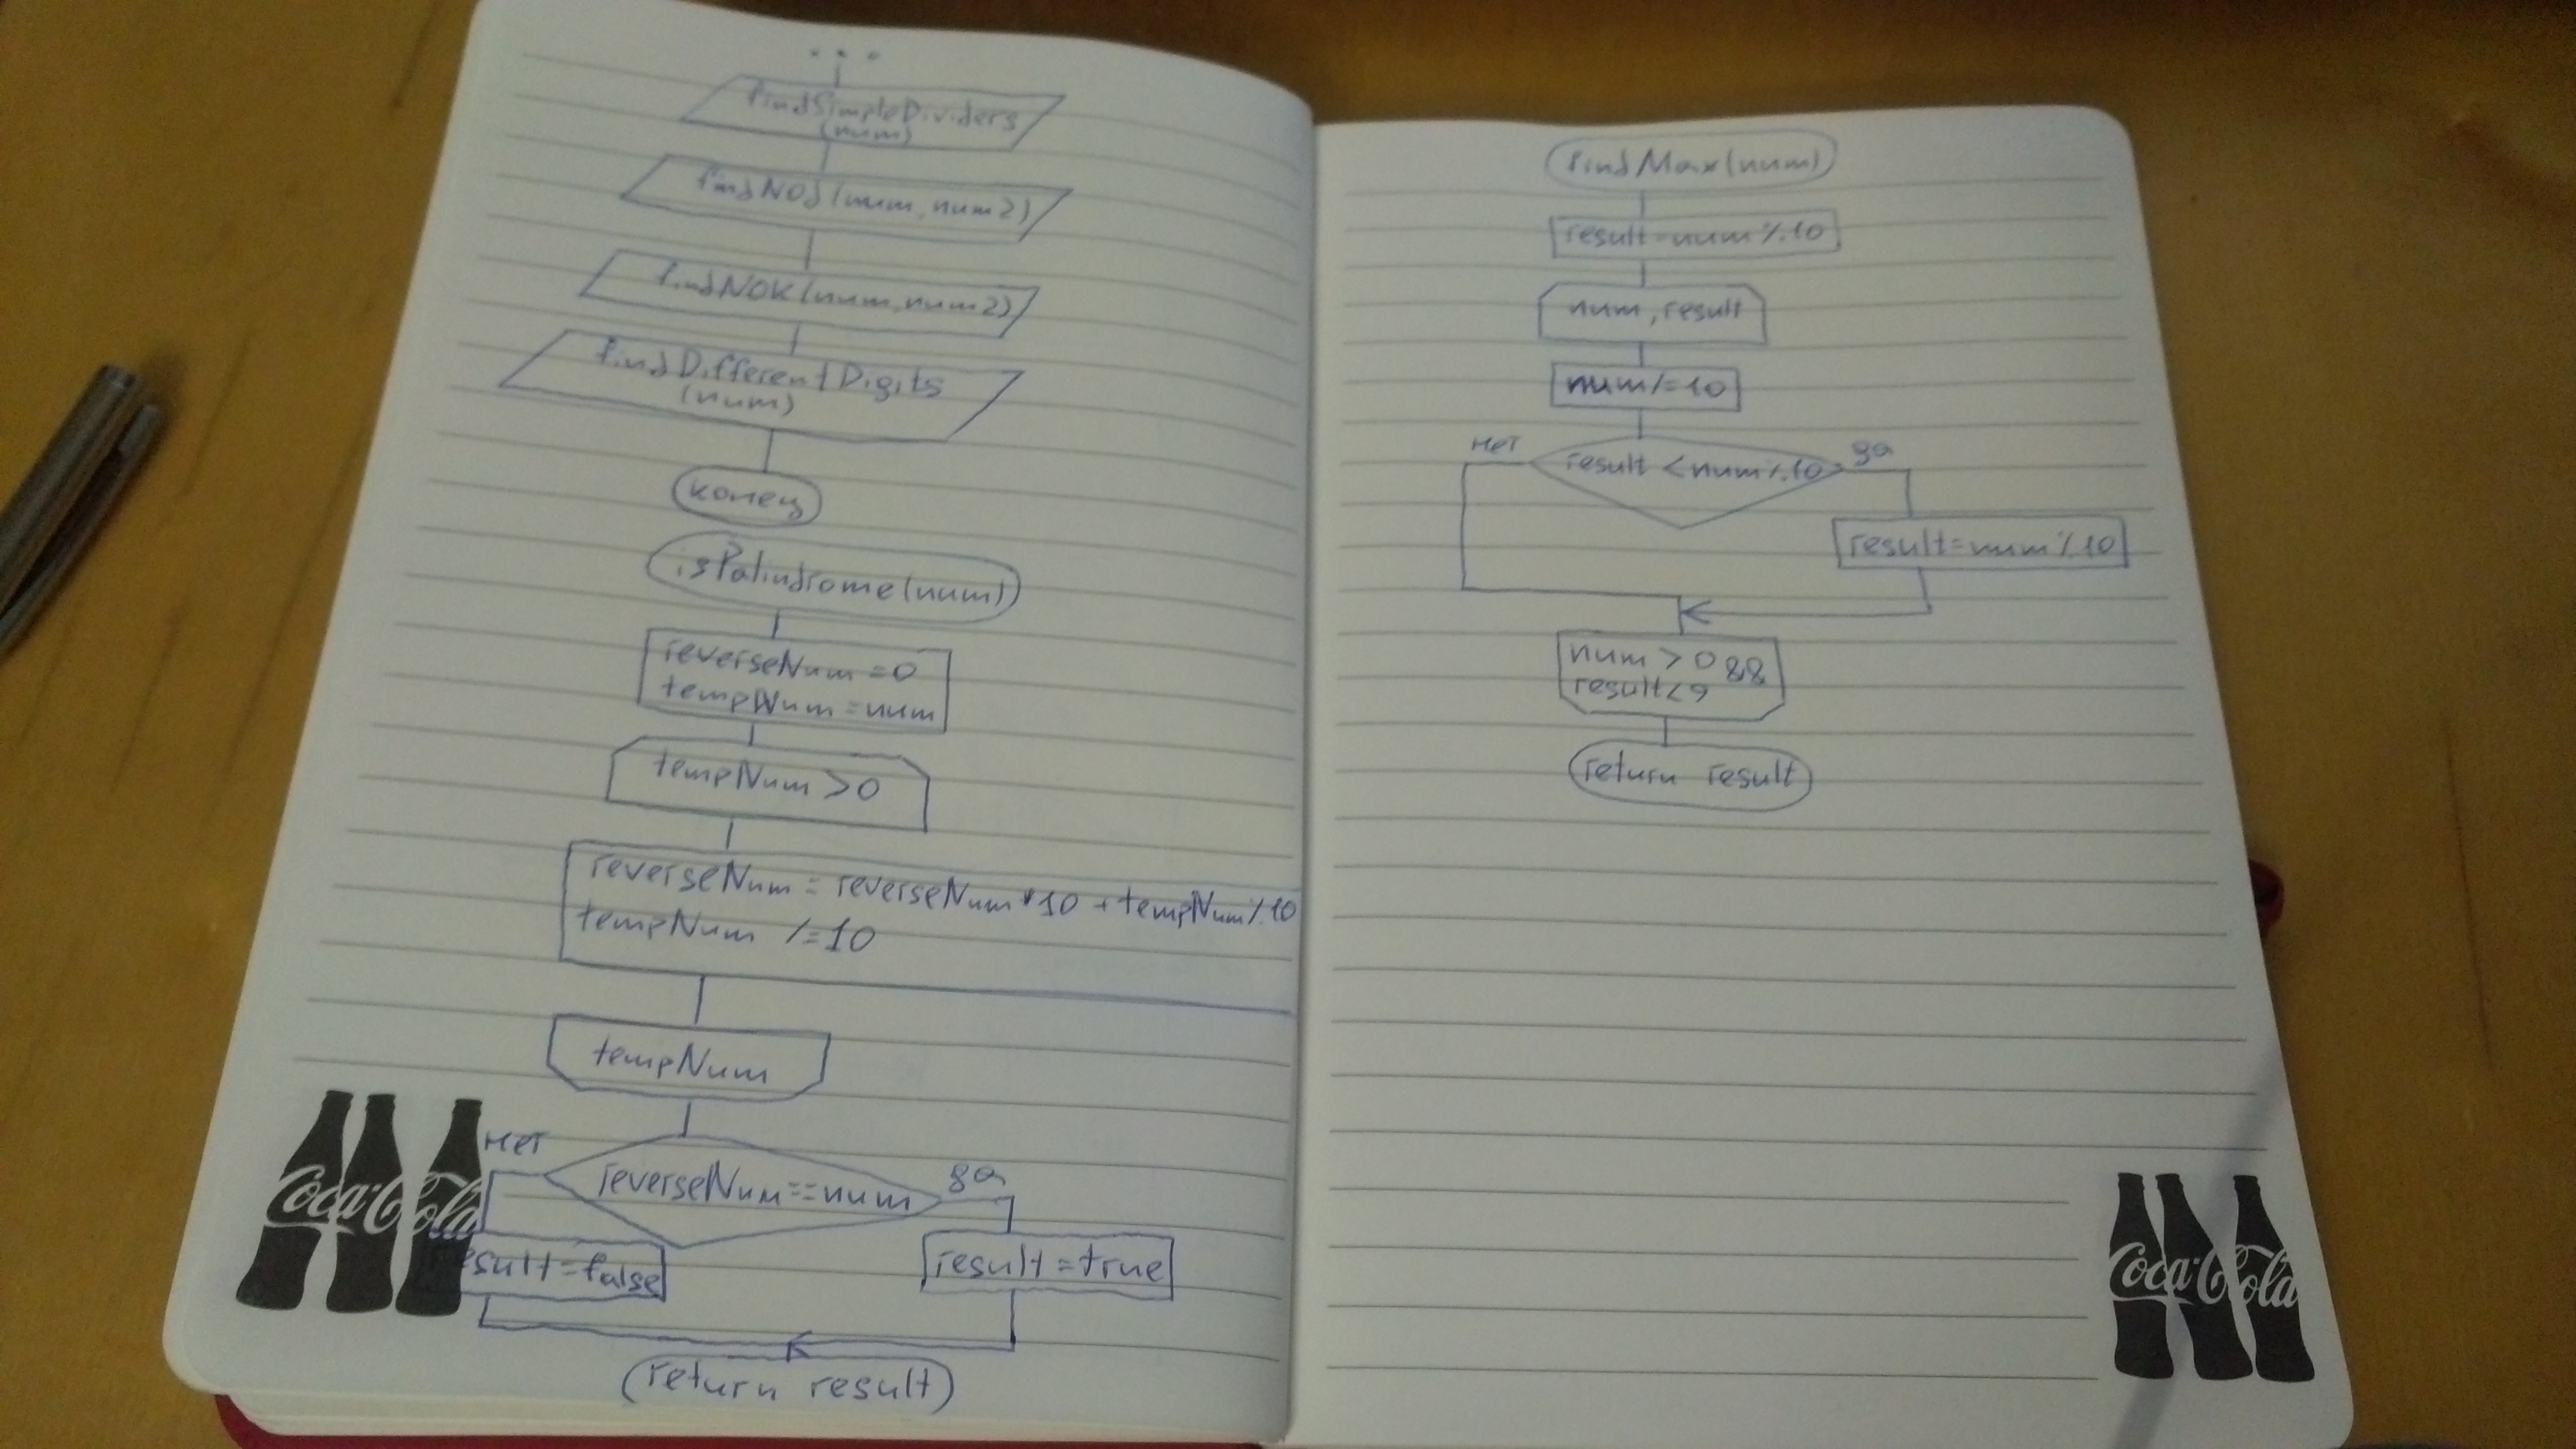 ...
findSimpleDividers
(num)
findNOd(num, num2)
findNOK(num, num2)
findDifferentDigits
(num)
конец
isPalindrome(num)
reverseNum = 0
tempNum = num
tempNum > 0
reverseNum = reverseNum*10 + tempNum%10
tempNum /=10
tempNum
нет
reverseNum==num
да
result=false
result=true
return result
Coca-Cola
findMax(num)
result=num%10
num, result
num/=10
нет
result < num%10
да
result=num%10
num > 0 &&
result<9
return result
Coca-Cola